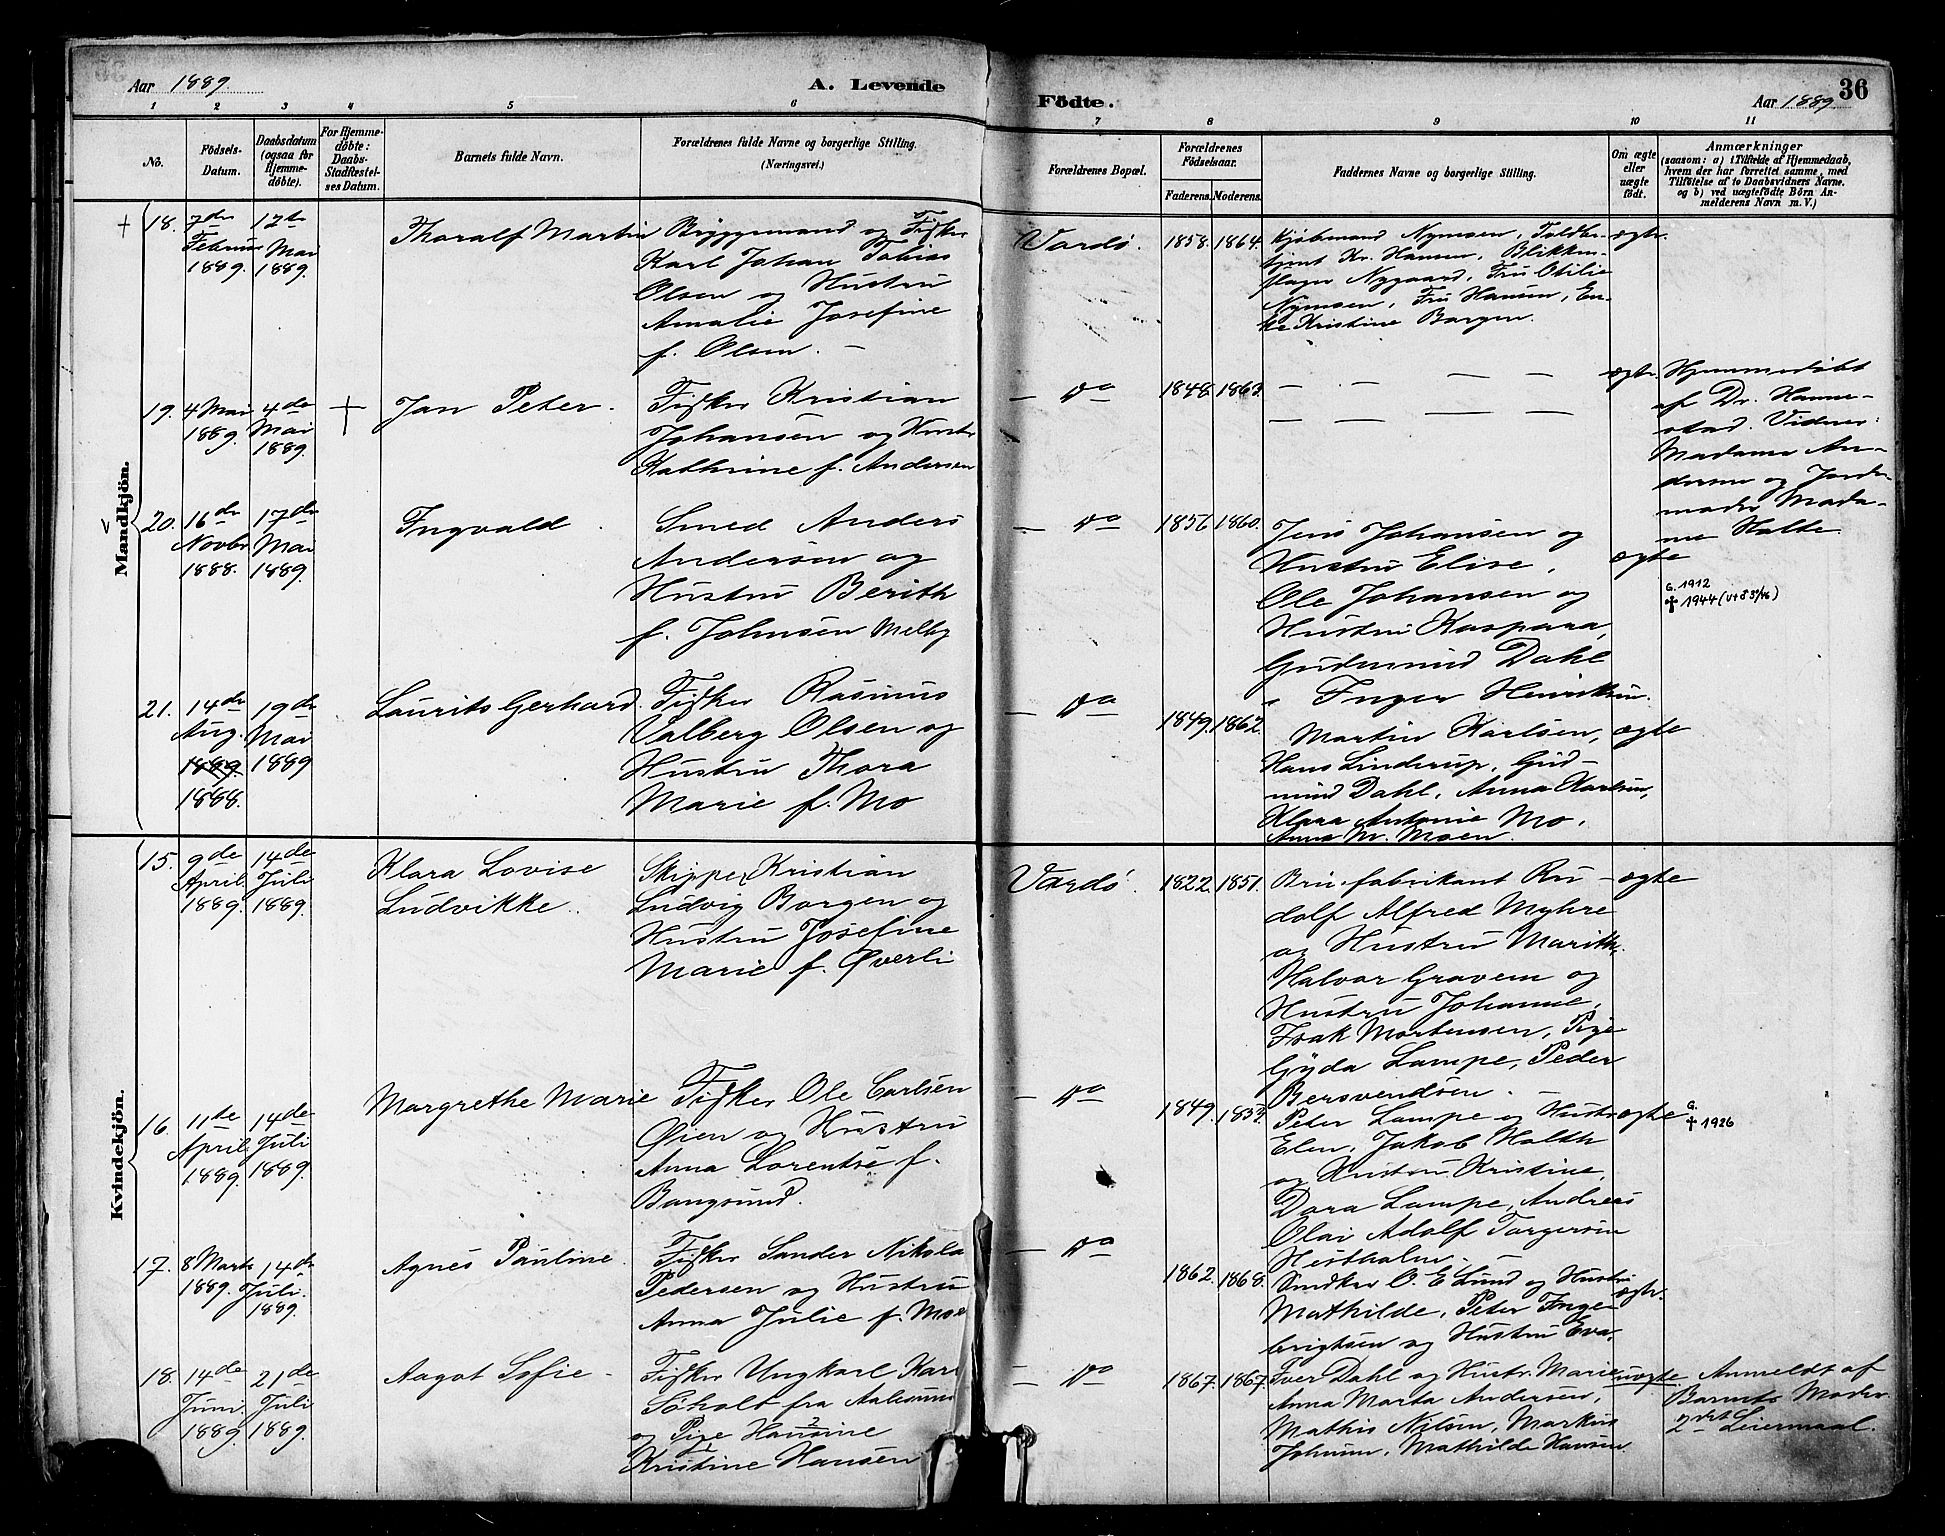 Aar 1889.
A. Levende
Födte.
Aar 1889
36
1 2 3 4 5 6 7 8 9 10 11
No.
Födsels-
Datum.
Daabsdatum
(ogsaa for
Hjemme-
døbte).
For Hjemme-
døbte:
Daabs-
Stadfæstel-
ses Datum.
Barnets fulde Navn.
Forældrenes fulde Navne og borgerlige Stilling.
(Næringsvei.)
Forældrenes Bopæl.
Forældrenes
Födselsaar.
Faderens. Moderens.
Faddernes Navne og borgerlige Stilling.
Om ægte
eller
uægte
født.
Anmærkninger
(saasom: a) i Tilfælde af Hjemmedaab,
hvem der har forrettet samme, med
Tilföielse af to Daabsvidners Navne.
og b) ved uægtefödte Börn An-
melderens Navn m. V.)
Mandkjön.
+ 18.
7de
Februar
1889.
12te
Mai
1889.
Tharalf Martin
Bryggemand og Fisker
Karl Johan Tobias
Olsen og Hustru
Amalie Josefine
f. Olsen. —
Vardö.
1858. 1864.
Kjöbmand Nymoen, Toldbe-
tjent Kr. Hansen, Blikken-
slager Nygaard, Fru Otilie
Nymoen, Fru Hansen, En-
ke Kristine Borgen.
ægte.
19.
4 Mai
1889.
4de
Mai
1889.
+
Jan Peter.
Fisker Kristian
Johansen og Hustr
Kathrine f. Andersen
— Do
1848. 1863.
— — — —
— — — —
ægte.
Hjemmedöbt
af Dr. Hanne-
stad. Vidner:
Madame An-
dersen og Jorde-
moder Mada-
me Holte.
20.
16de
Novbr
1888.
17de
Mai
1889.
Ingvald.
Smed Anders
Andersen og
Hustru Berith
f. Johnsen Melby
— Do
1856 1860.
Jens Johansen og
Hustru Elise,
Ole Johansen og
Hustru Kaspara,
Gudmund Dahl
Inger Henriksen.
ægte
G. 1912
✝ 1944
21.
14de
Aug.
1889.
1888.
19de
Mai
1889
Laurits Gerhard.
Fisker Rasmus
Valberg Olsen og
Hustru Thora
Marie f. Mo
— Do
1849. 1862.
Martin Karlsen,
Hans Linderup, Gud-
mund Dahl, Anna Karlsen,
Klara Antonie Mo,
Anna M. Moen.
ægte
Kvindekjön.
15.
9de
April
1889.
14de
Juli
1889.
Klara Lovise
Ludvikke.
Skipper Kristian
Ludvig Borgen og
Hustru Josefine
Marie f. Øverli
Vardö.
1822. 1851.
Brusfabrikant Ru-
dolf Alfred Myhre
og Hustru Marith,
Halvor Gravem og
Hustru Johanne,
Isak Mortensen, Pige
Gyda Lampe, Peder
Bersvendsen. —
ægte
16.
11te
April
1889.
14de
Juli
1889.
Margrethe Marie
Fisker Ole Carlsen
Øien og Hustru
Anna Lorentse f.
Bangsund.
— Do
1849. 1853.
Peter Lampe og Hustr
Elen, Jakob Holth
og Hustru Kristine,
Dora Lampe, Andreas
Olai Adolf Torgersen
Hestholm. —
ægte
G.
✝ 1926
17.
8 Marts
1889.
14de
Juli.
1889.
Agnes Pauline.
Fisker Sander Nikolai
Pedersen og Hustru
Anna Julie f. Moe
— Do
1862. 1868.
Snedker O. E Lund og Hustru
Mathilde, Peter Inge-
brigtsen og Hustru Eva.
ægte.
18.
14de
Juni
1889.
21de
Juli
1889.
Aagot Sofie.
Fisker Ungkarl Karl
Söholt fra Aalesund
og Pige Hansine
Kristine Hansen
— Do
1867. 1867.
Iver Dahl og Hustr. Marie
Anna Marta Andersen,
Mathis Nilsen, Markus
Johnsen, Mathilde Hansen
uægte
Anmeldt af
Barnets Moder.
2det Leiermaal.